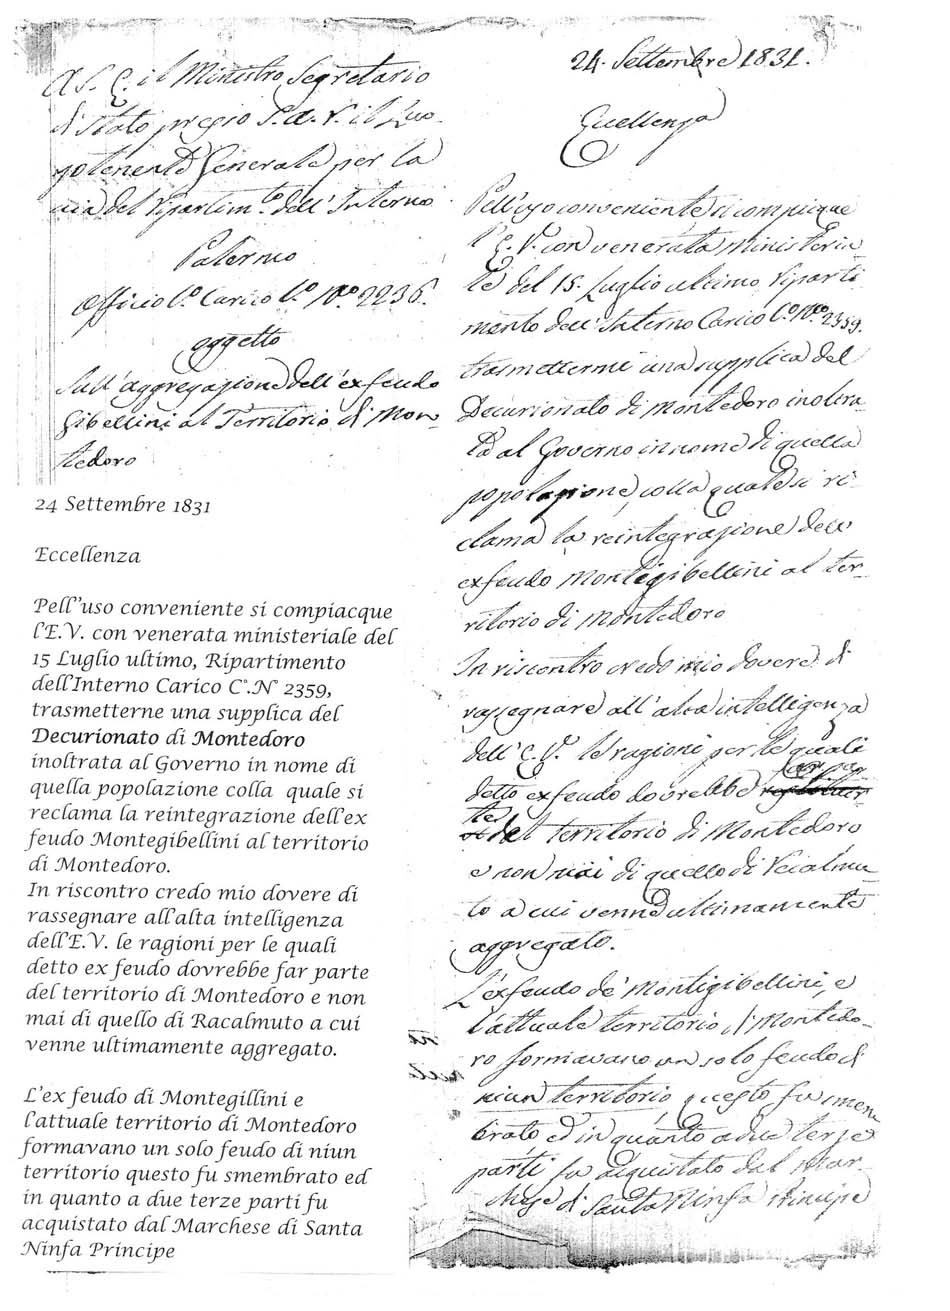 A S. E. il Ministro Segretario
di Stato presso S. A. R. il Luo-
gotenente Generale per la
via del Ripartim.to dell'Interno
Palermo
Officio C.º Carico C.º N.º 2236.
oggetto
Sull'aggregazione dell'exfeudo
Gibellini al Territorio di Mon-
tedoro
24 Settembre 1831
Eccellenza
Pell'uso conveniente si compiacque
l'E.V. con venerata ministeriale del
15 Luglio ultimo, Ripartimento
dell'Interno Carico C°.N° 2359,
trasmetterne una supplica del
Decurionato di Montedoro
inoltrata al Governo in nome di
quella popolazione colla quale si
reclama la reintegrazione dell'ex
feudo Montegibellini al territorio
di Montedoro.
In riscontro credo mio dovere di
rassegnare all'alta intelligenza
dell'E.V. le ragioni per le quali
detto ex feudo dovrebbe far parte
del territorio di Montedoro e non
mai di quello di Racalmuto a cui
venne ultimamente aggregato.
L'ex feudo di Montegillini e
l'attuale territorio di Montedoro
formavano un solo feudo di niun
territorio questo fu smembrato ed
in quanto a due terze parti fu
acquistato dal Marchese di Santa
Ninfa Principe
24. Settembre 1831.
Eccellenza
Pell'uso conveniente si compiacque
l'E. V. con venerata ministeria-
le del 15. Luglio ultimo, Riparti-
mento dell'Interno Carico C.º N.º 2359.
trasmettermi una supplica del
Decurionato di Montedoro inoltra-
ta al Governo in nome di quella
popolazione, colla quale si ri-
clama la reintegrazione dell'
exfeudo Montegibellini al ter-
ritorio di Montedoro
In riscontro credo mio dovere di
rassegnare all'alta intelligenza
dell'E. V. le ragioni per le quali
detto exfeudo dovrebbe far par-
te del territorio di Montedoro
e non mai di quello di Racalmu-
to a cui venne ultimamente
aggregato.
L'exfeudo de' Montigibellini, e
l'attuale territorio di Montedo-
ro formavano un solo feudo di
niun territorio questo fu smem-
brato ed in quanto a due terze
parti fu acquistato dal Mar-
chese di Santa Ninfa Principe